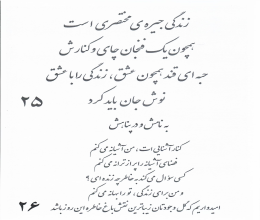 زندگی جیره ی مختصری است
همچون یک فنجان چای و کنارش
حبه ای قند همچون عشق، زندگی را با عشق
نوش جان باید کرد
۲۵
به نامش و در پناهش
کنار آشنایی است، من آشیانه می کنم
فضای آشیانه را پر از ترانه می کنم
کسی سؤال می کند به خاطر چه زنده ای؟
و من برای زندگی، تو را بهانه می کنم
امیدواریم که گل وجودتان زیباترین نقش باغ خاطره این روز باشد
۲۶